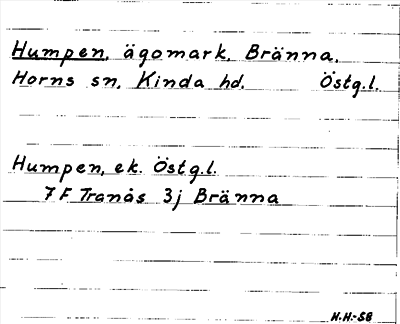 Humpen, ägomark, Bränna.
Horns sn, Kinda hd. Östg.l.
Humpen, ek. Östg.l.
7 F Tranås 3j Bränna
H.H.-58